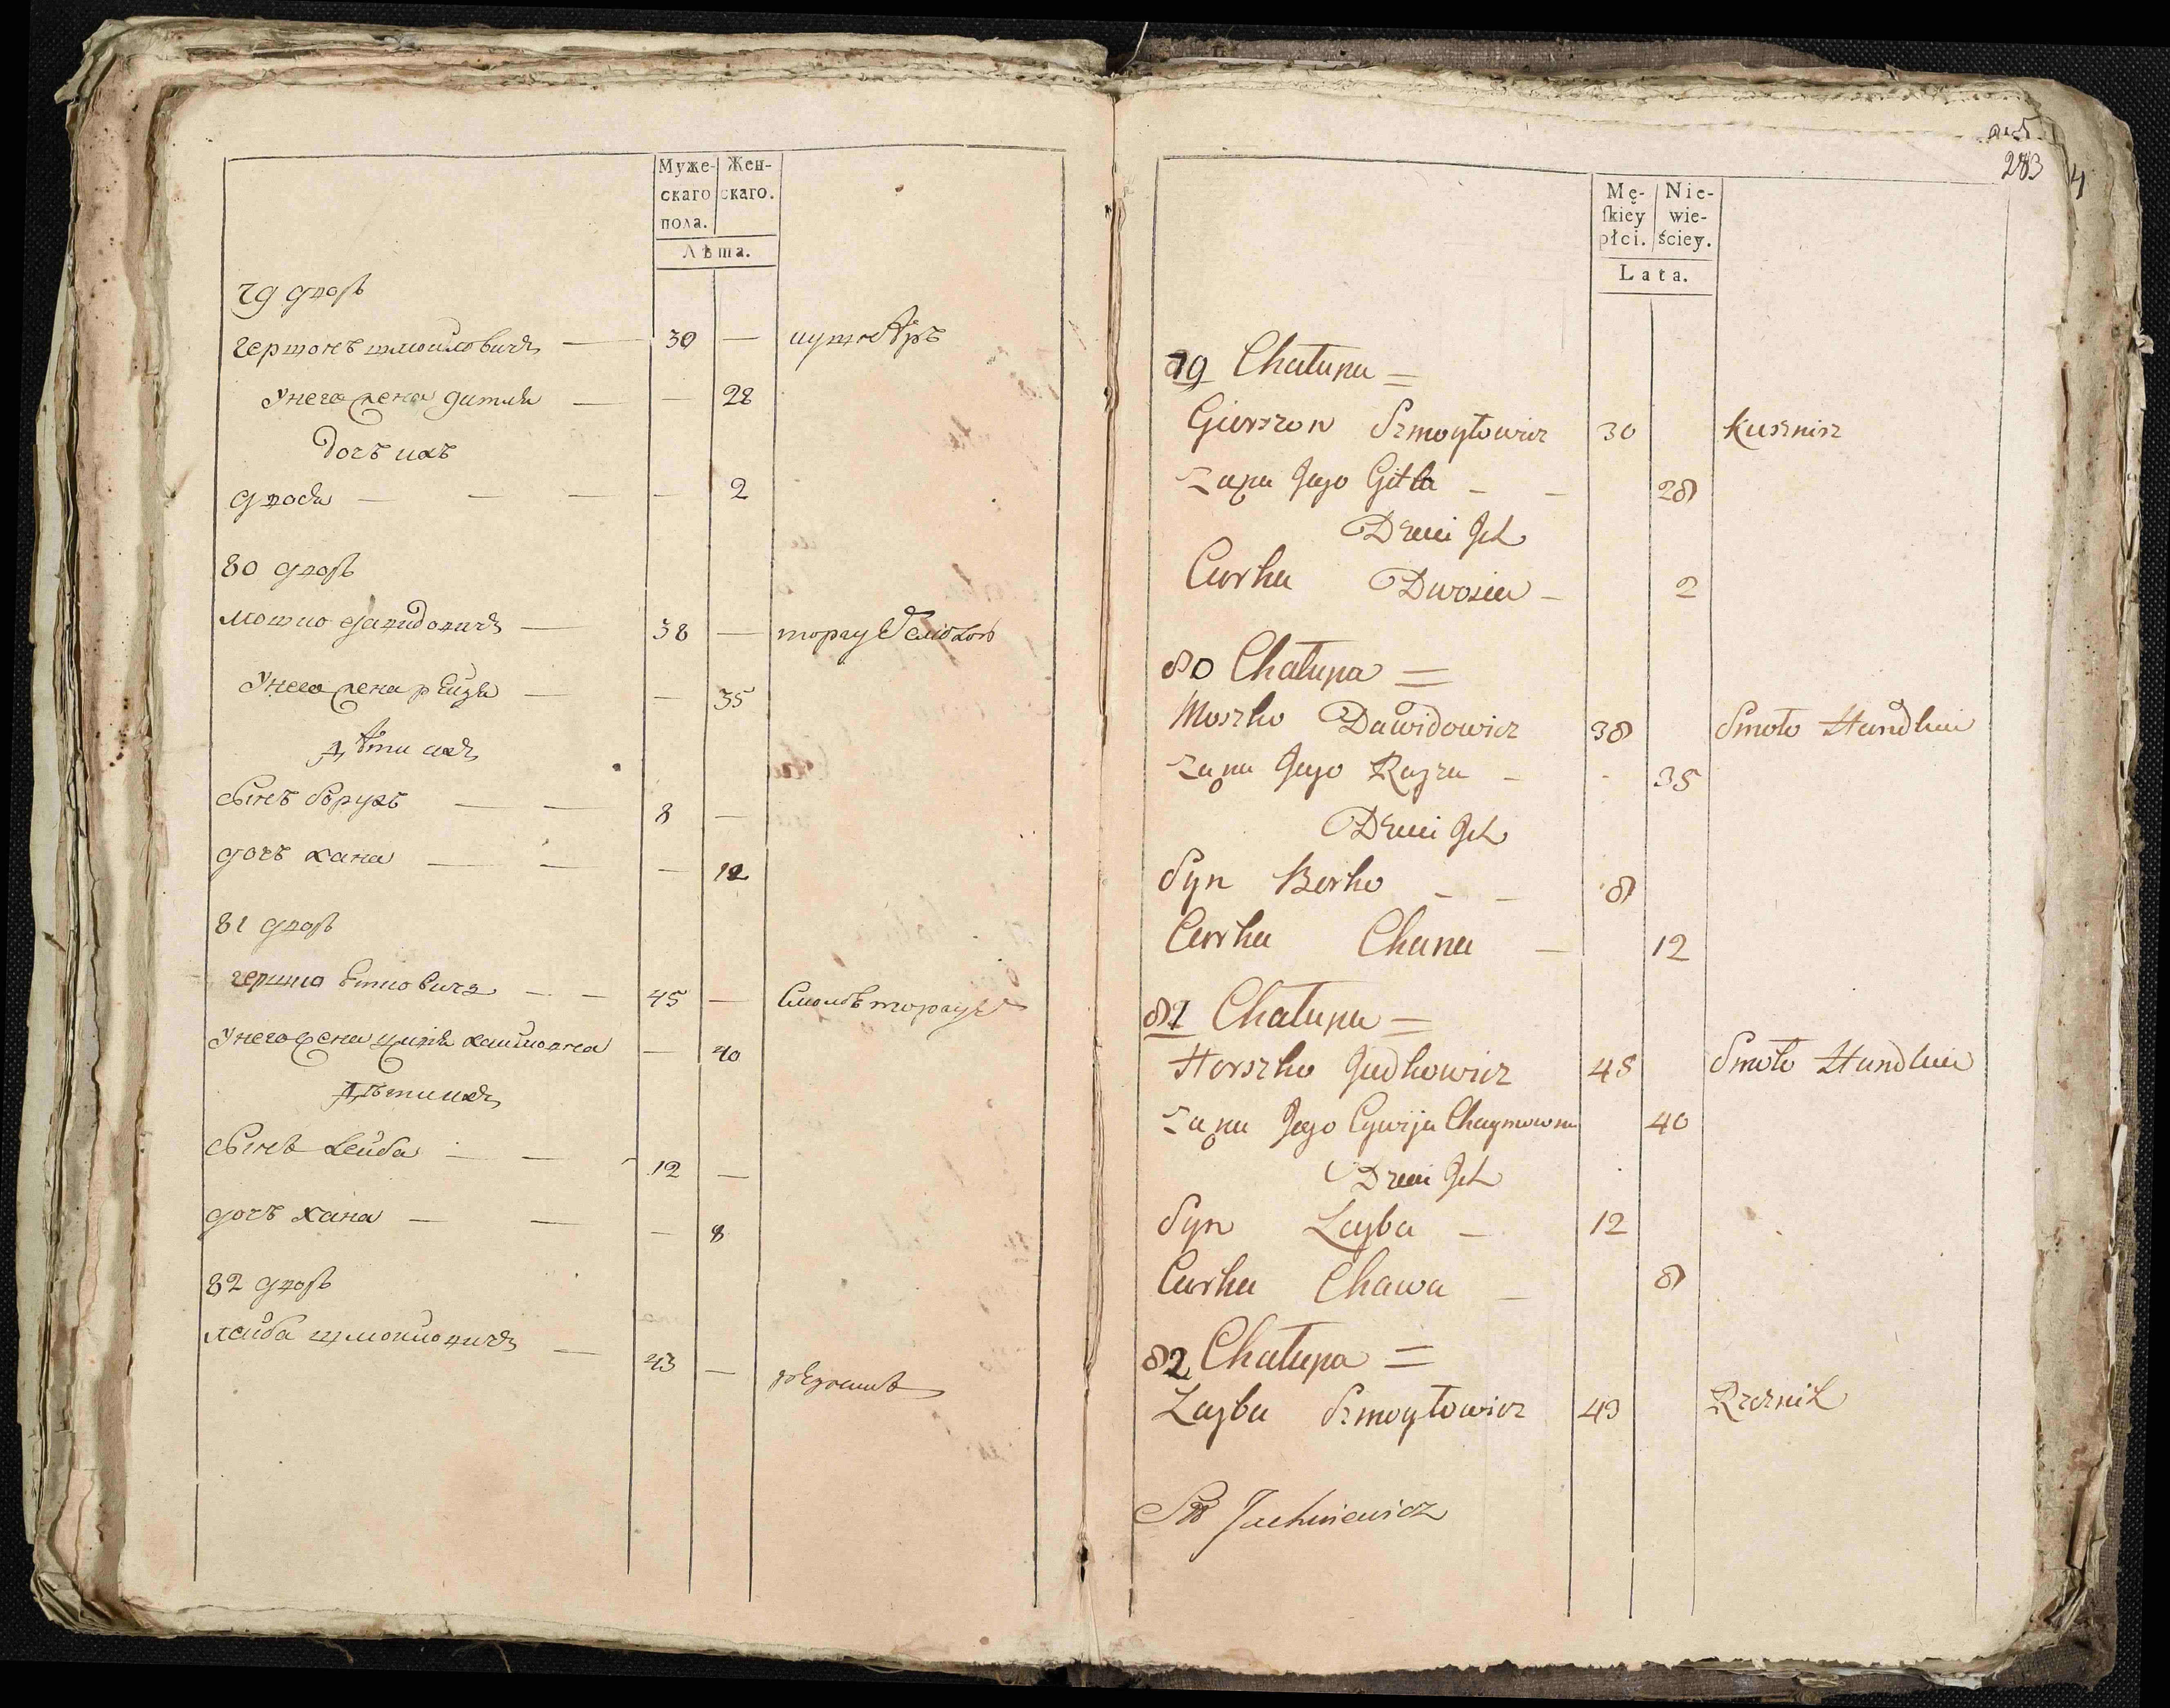 Муже-
скаго
пола.
Жен-
скаго.
Лѣта.
79 дворъ
гершонъ шмойловичъ — 30 —
У него жена гитля — — 28
дочъ ихъ
двося — — — — 2
80 дворъ
мошко давидовичъ — 38 — торгуе
У него жена рейза — — 35
дѣти ихъ
сынъ борухъ — — 8 —
дочъ хана — — — 12
81 дворъ
гершко — — 45 — смолѣ торгуе
У него жена цивія хаимовна — 40
дѣти ихъ
сынъ лейба — — 12 —
дочъ хана — — — 8
82 дворъ
лейба шмойловичъ — 43 —
283
4
Mę-
ſkiéy
płci.
Nie-
wie-
ściey.
Lata.
79 Chałupa =
Gierszon Szmoyłowicz 30 kusznirz
Zaona Jego Gitla – – 28
Dzieci Ich
Curka Dwosia – 2
80 Chałupa =
Moszko Dawidowicz 38 Smoło Handluie
Zaona Jego Rayza – - 35
Dzieci Ich
Syn Berko – – 8
Curka Chana – 12
81 Chałupa =
Herszko Judkowicz 45 Smoło Handluie
Zaona Jego Cywija Chaymowna 40
Dzieci Ich
Syn Layba – 12
Curka Chawa – 8
82 Chałupa =
Layba Szmoyłowicz 43 Rzeznik
Jachniewicz